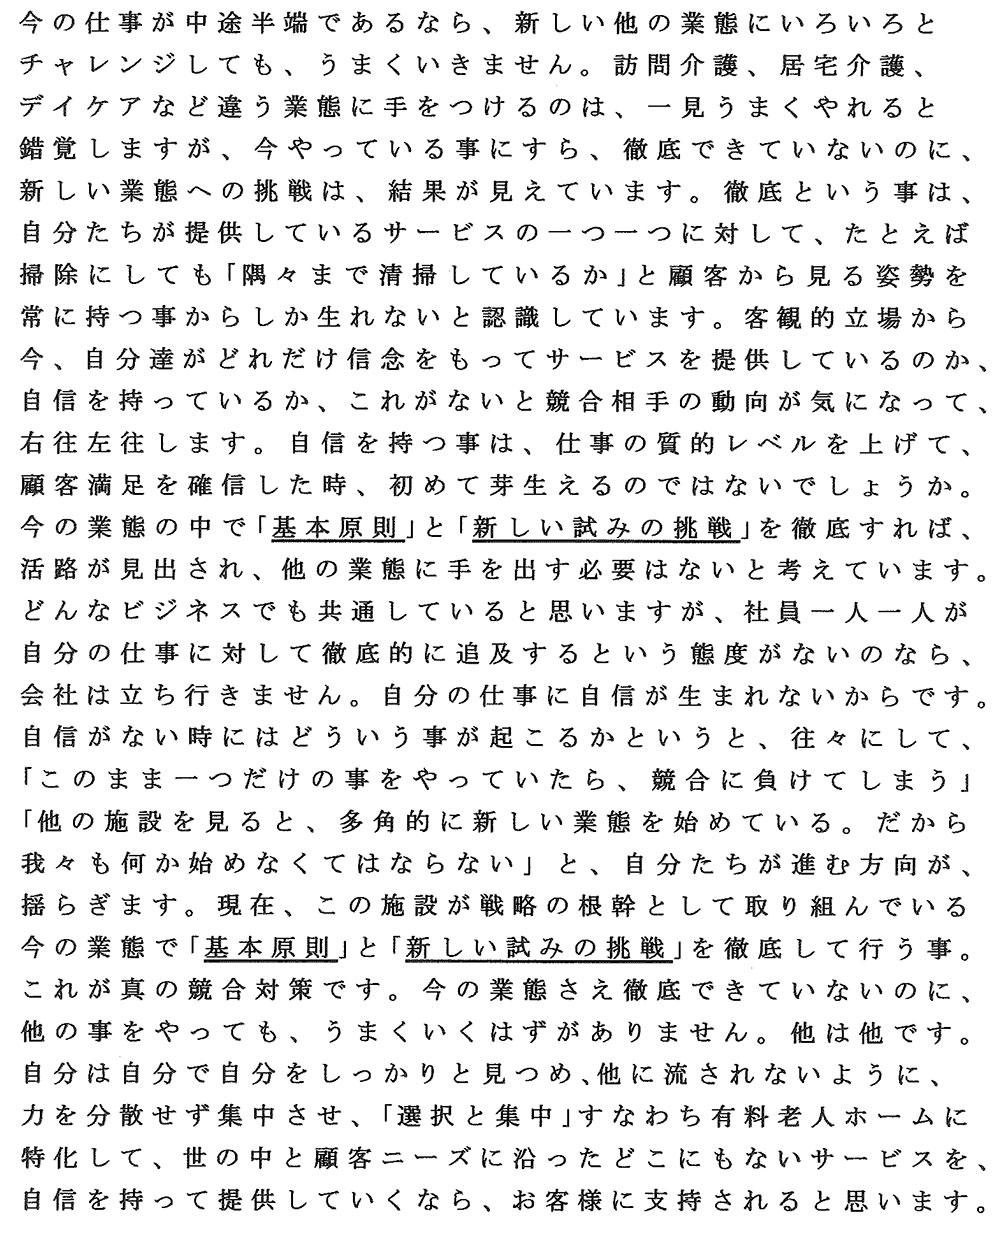 今の仕事が中途半端であるなら、新しい他の業態にいろいろと
チャレンジしても、うまくいきません。訪問介護、居宅介護、
デイケアなど違う業態に手をつけるのは、一見うまくやれると
錯覚しますが、今やっている事にすら、徹底できていないのに、
新しい業態への挑戦は、結果が見えています。徹底という事は、
自分たちが提供しているサービスの一つ一つに対して、たとえば
掃除にしても「隅々まで清掃しているか」と顧客から見る姿勢を
常に持つ事からしか生れないと認識しています。客観的立場から
今、自分達がどれだけ信念をもってサービスを提供しているのか、
自信を持っているか、これがないと競合相手の動向が気になって、
右往左往します。自信を持つ事は、仕事の質的レベルを上げて、
顧客満足を確信した時、初めて芽生えるのではないでしょうか。
今の業態の中で「基本原則」と「新しい試みの挑戦」を徹底すれば、
活路が見出され、他の業態に手を出す必要はないと考えています。
どんなビジネスでも共通していると思いますが、社員一人一人が
自分の仕事に対して徹底的に追及するという態度がないのなら、
会社は立ち行きません。自分の仕事に自信が生まれないからです。
自信がない時にはどういう事が起こるかというと、往々にして、
「このまま一つだけの事をやっていたら、競合に負けてしまう」
「他の施設を見ると、多角的に新しい業態を始めている。だから
我々も何か始めなくてはならない」と、自分たちが進む方向が、
揺らぎます。現在、この施設が戦略の根幹として取り組んでいる
今の業態で「基本原則」と「新しい試みの挑戦」を徹底して行う事。
これが真の競合対策です。今の業態さえ徹底できていないのに、
他の事をやっても、うまくいくはずがありません。他は他です。
自分は自分で自分をしっかりと見つめ、他に流されないように、
力を分散せず集中させ、「選択と集中」すなわち有料老人ホームに
特化して、世の中と顧客ニーズに沿ったどこにもないサービスを、
自信を持って提供していくなら、お客様に支持されると思います。